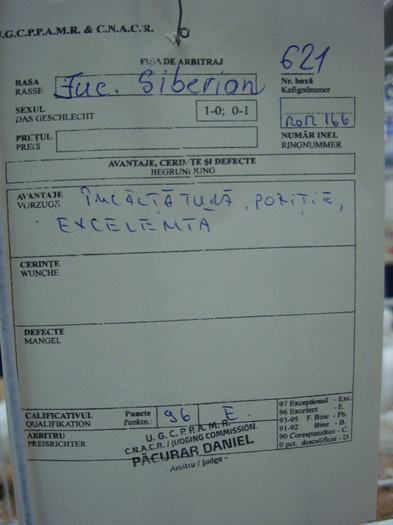 U.G.C.P.P.A.M.R. & C.N.A.C.R.
FIȘA DE ARBITRAJ
621
RASA
RASSE
Juc. Siberian
Nr. boxă
Kafignümmer
SEXUL
DAS GESCHLECHT
1-0; 0-1
ROM 166
PREȚUL
PREIS
NUMĂR INEL
RINGNUMMER
AVANTAJE, CERINȚE ȘI DEFECTE
BEGRUNDUNG
AVANTAJE
VORZUGE
ÎNCĂLȚĂTURĂ, POZIȚIE,
EXCELENTĂ
CERINȚE
WUNCHE
DEFECTE
MANGEL
CALIFICATIVUL
QUALIFIKATION
Puncte
Punktn.:
96
E.
97 Excepțional - Exc.
96 Excelent - E.
93-95 F. Bine - Fb.
91-92 Bine - B.
90 Corespunzător - C.
0 pct. descalificat - D.
ARBITRU
PREISRICHTER
U. G. C. P. P. A. M. R.
C.N.A.C.R. / JUDGING COMMISSION
PĂCURAR DANIEL
- Arbitru / Judge -